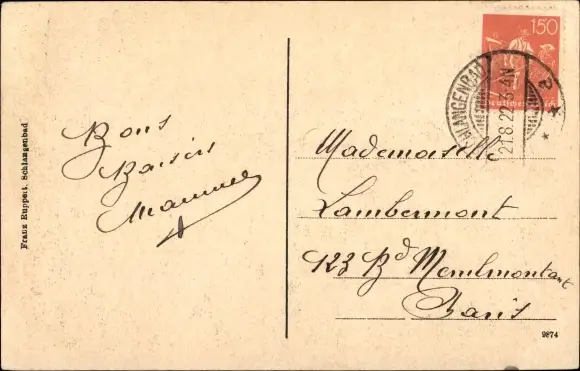 Franz Ruppert, Schlangenbad
Bons
Baisers
Maman
150
Deutsches Reich
SCHLANGENBAD
21.8.22.
AN
a
Mademoiselle
Lambermont
123 Bd Menilmontant
Paris
9874